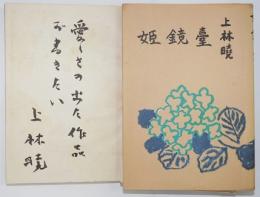 愛しさの出た作品
が書きたい
上林暁
上林曉
姫鏡臺